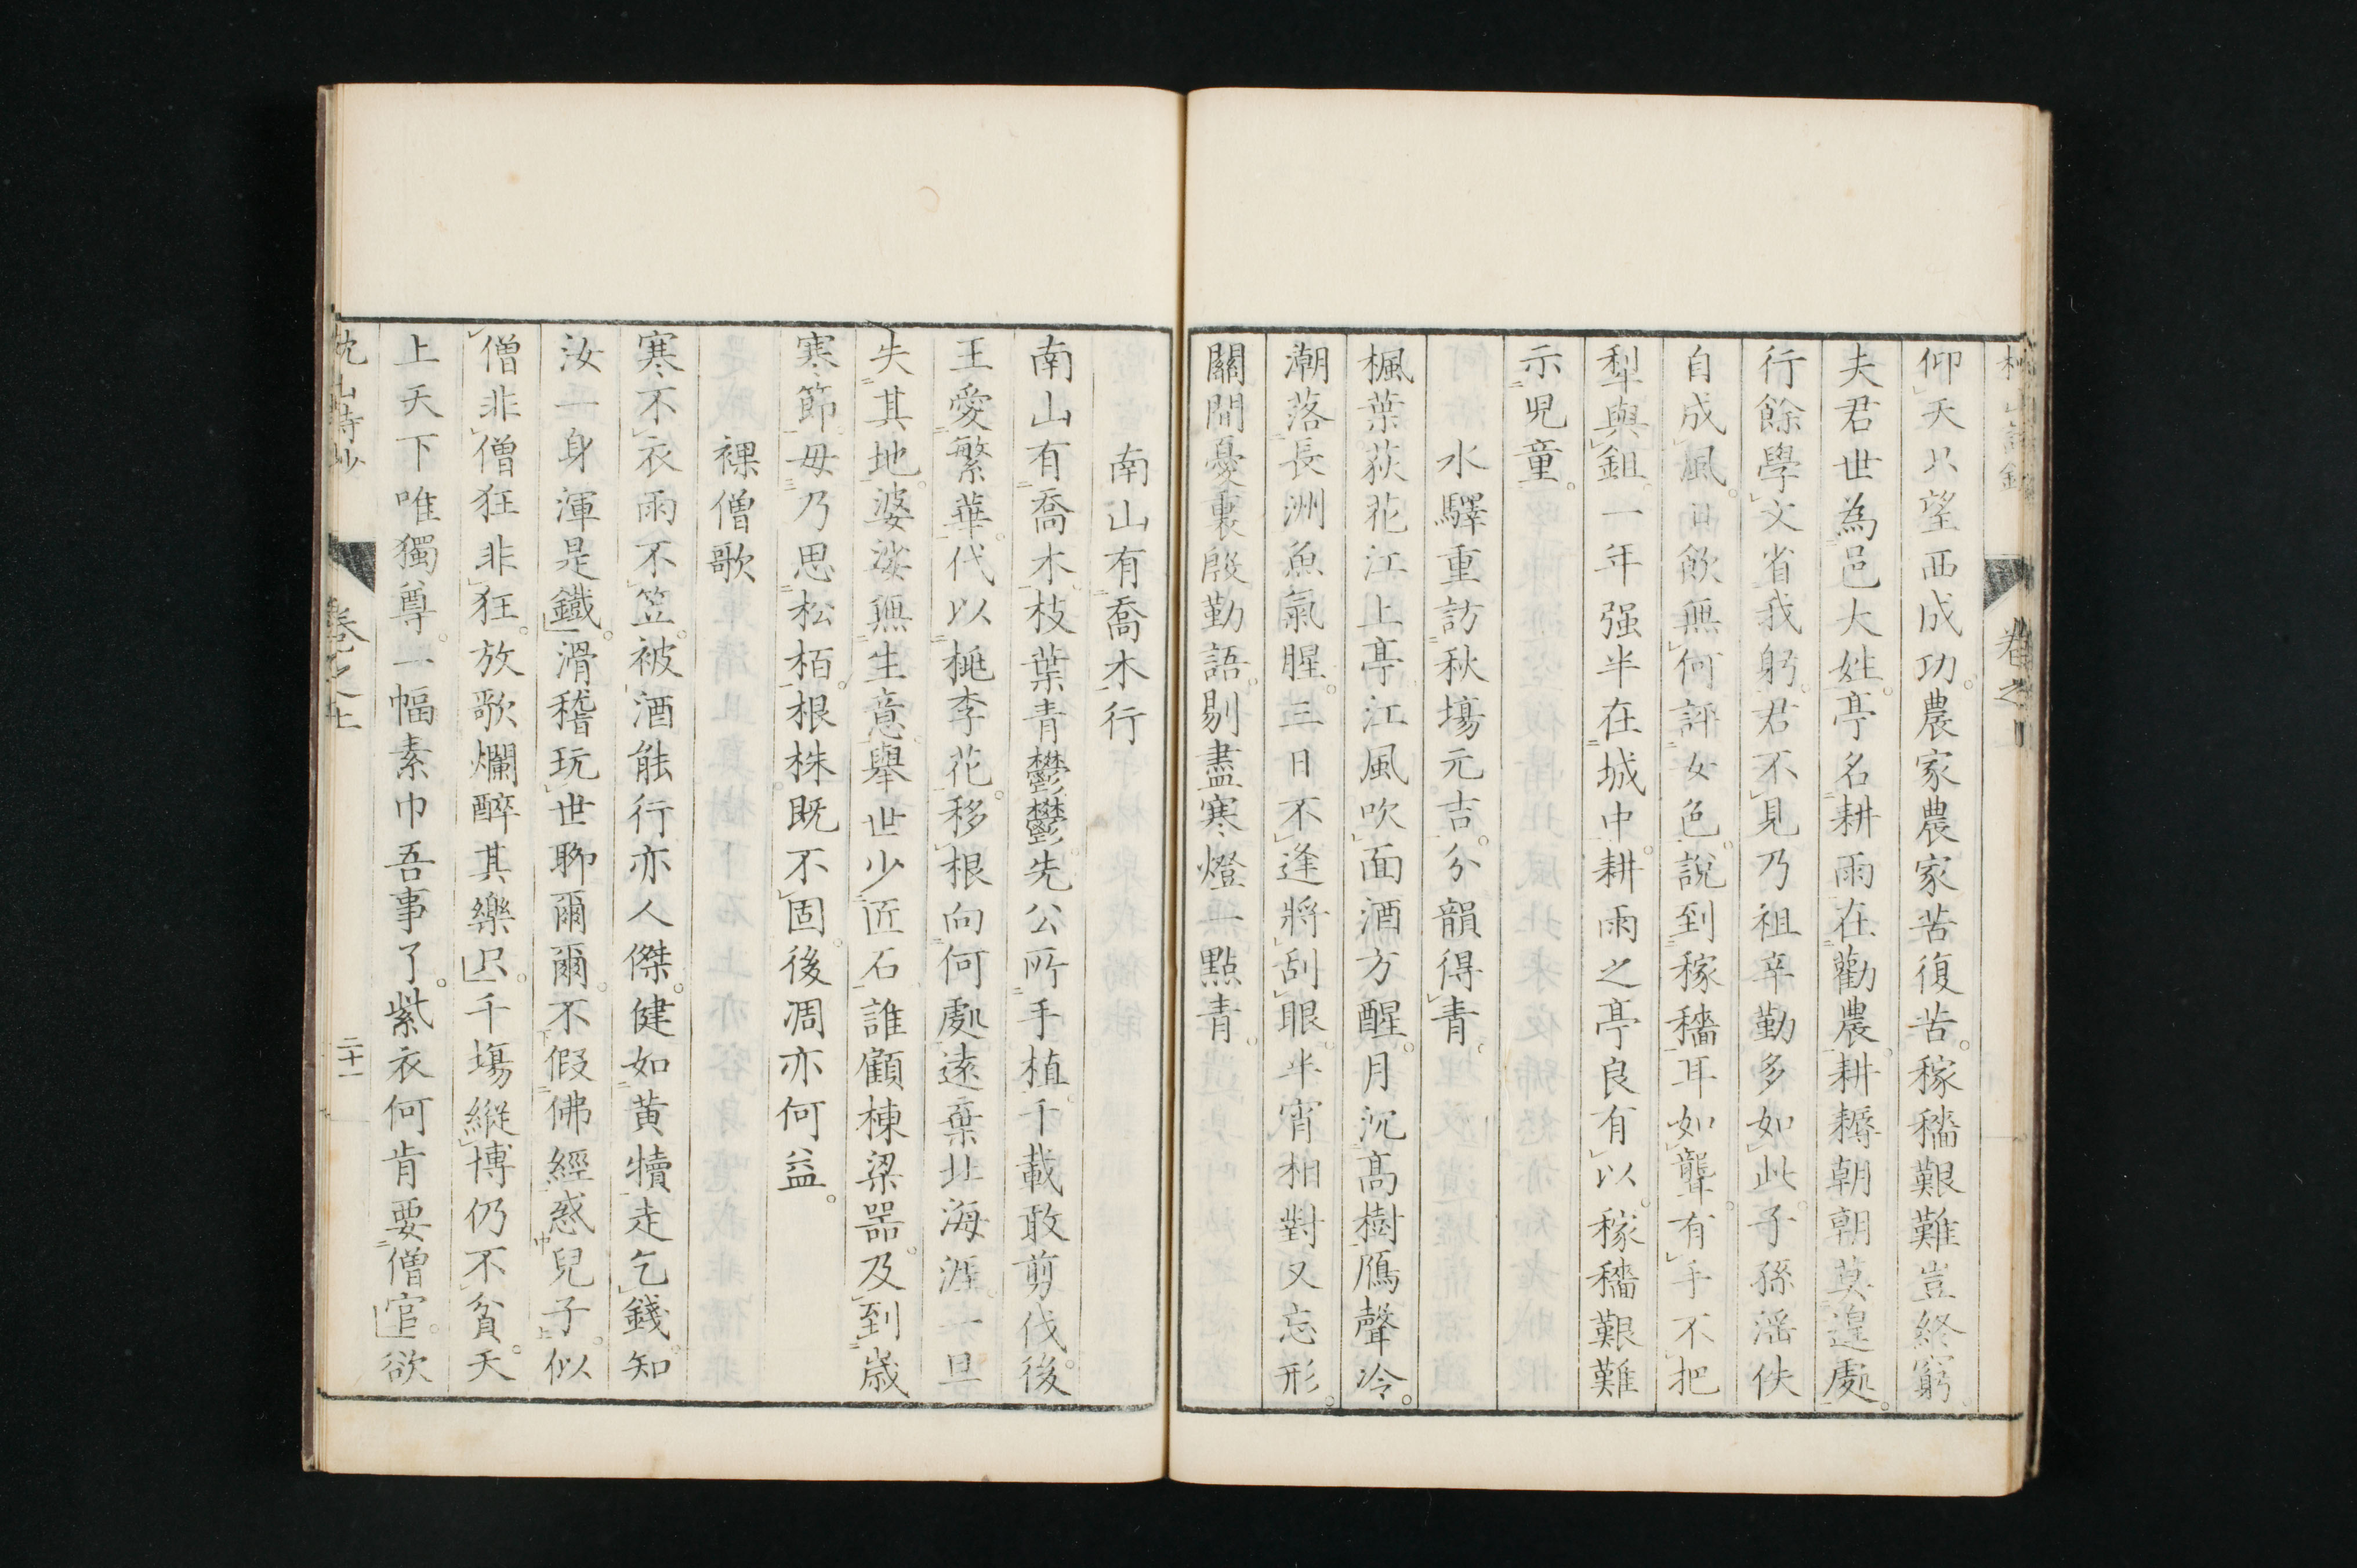 仰天只望西成功。農家農家苦復苦。稼穡艱難豈終窮。
夫君世為邑大姓。亭名耕雨在勸農。耕耨朝朝莫遑處。
行餘學文省我躬。君不見乃祖辛勤多如此。子孫淫佚
自成風。日飲無何評女色。說到稼穡耳如聾。有手不把
犁與鉏。一年强半在城中。耕雨之亭良有以。稼穡艱難
示兒童。
水驛重訪秋塲元吉。分韻得青。
楓葉荻花江上亭江風吹面酒方醒。月沉高樹鴈聲冷。
潮落長洲魚氣腥。三日不逢將刮眼。半宵相對又忘形。
關閒憂裏慇勤語。剔盡寒燈一點青。
南山有喬木行
南山有喬木。枝葉青鬱鬱。先公所手植。千載敢剪伐。後
王愛繁華。代以桃李花。移根向何處。遠棄北海涯。一旦
失其地。婆娑無生意。舉世少匠石。誰顧棟梁器。及到歲
寒節。毋乃思松栢。根株既不固。後凋亦何益。
裸僧歌
寒不衣雨不笠。被酒能行亦人傑。健如黄犢走乞錢。知
汝一身渾是鐵。滑稽玩世聊爾爾。不假佛經惑兒子。似
僧非僧狂非狂。放歌爛醉其樂只。千塲縱博仍不貧。天
上天下唯獨尊。一幅素巾吾事了。紫衣何肯要僧官。欲
枕山詩抄
卷之上
二十一